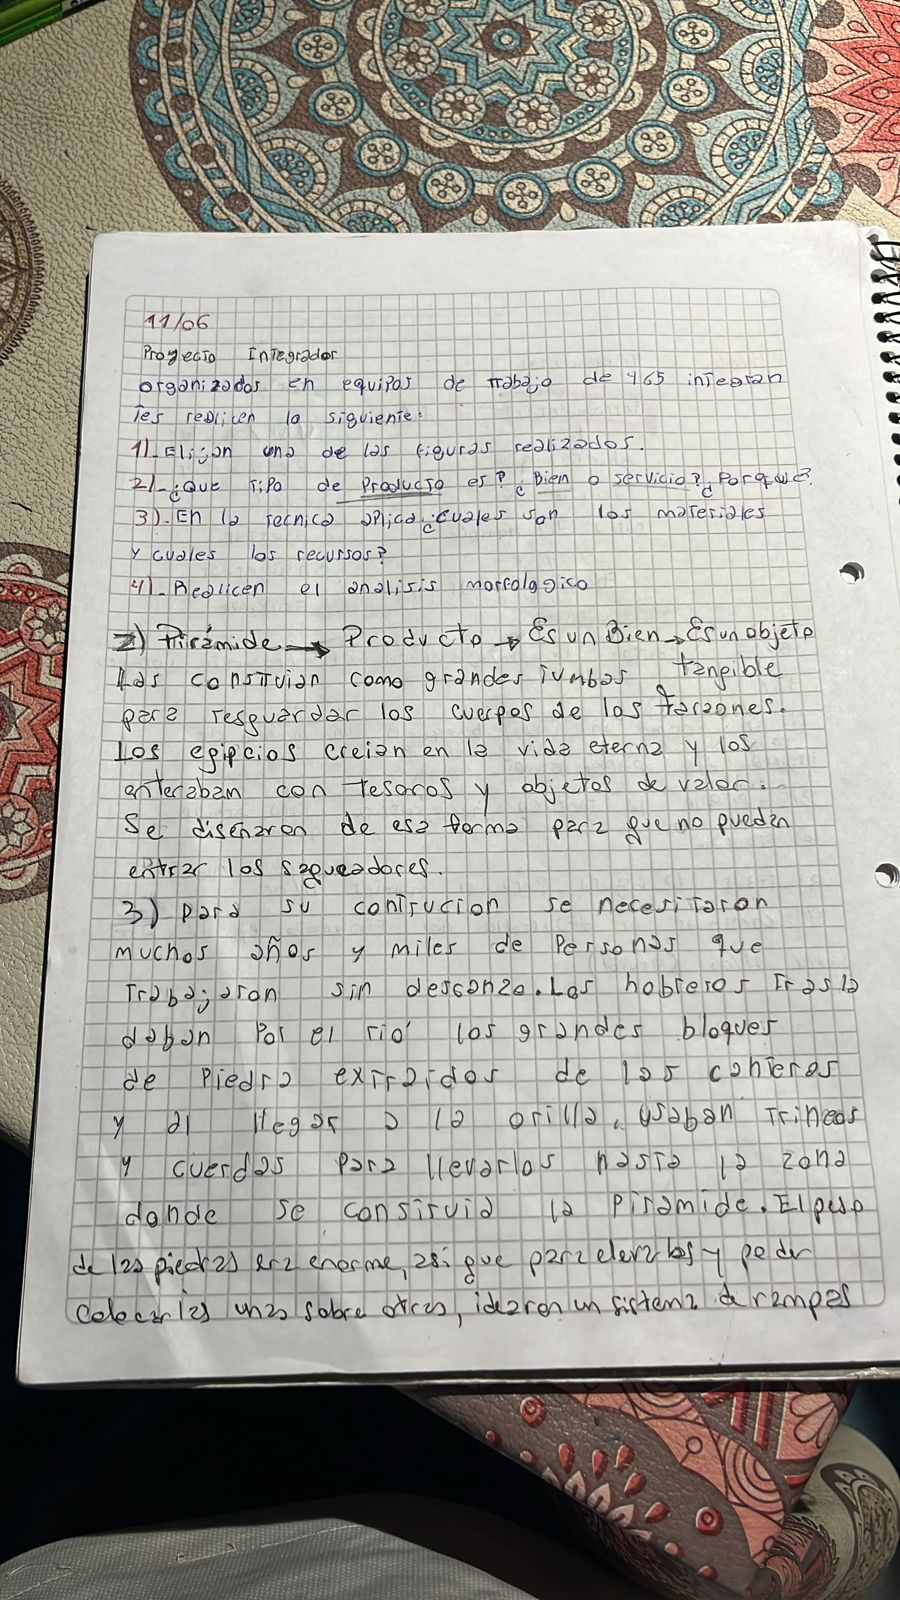 11/06
Proyecto Integrador
organizados en equipos de trabajo de 4 o 5 integran
tes realicen lo siguiente:
1)-Elijan una de las figuras realizados.
2)-¿Que tipo de Producto es? ¿Bien o servicio? ¿Porqué?
3)-En la tecnica aplica ¿cuales son los materiales
y cuales los recursos?
4)-Realicen el analisis morfologico
2) Pirámide → Producto → Es un Bien → Es un objeto
Las construian como grandes tumbas tangible
para resguardar los cuerpos de los faraones.
Los egipcios creian en la vida eterna y los
enteraban con tesoros y objetos de valor.
Se diseñaron de esa forma para que no puedan
entrar los saqueadores.
3) Para su contrucion se necesitaron
muchos años y miles de Personas que
trabajaron sin descanzo. Los hobreros trasla
daban Por el rio los grandes bloques
de Piedra extraidos de las canteras
y al llegar a la orilla, usaban trineos
y cuerdas para llevarlos hasta la zona
donde se construia la Piramide. El peso
de las piedras era enorme, asi que para elevarlas y poder
colocarlas unas sobre otras, idearon un sistema de rampas